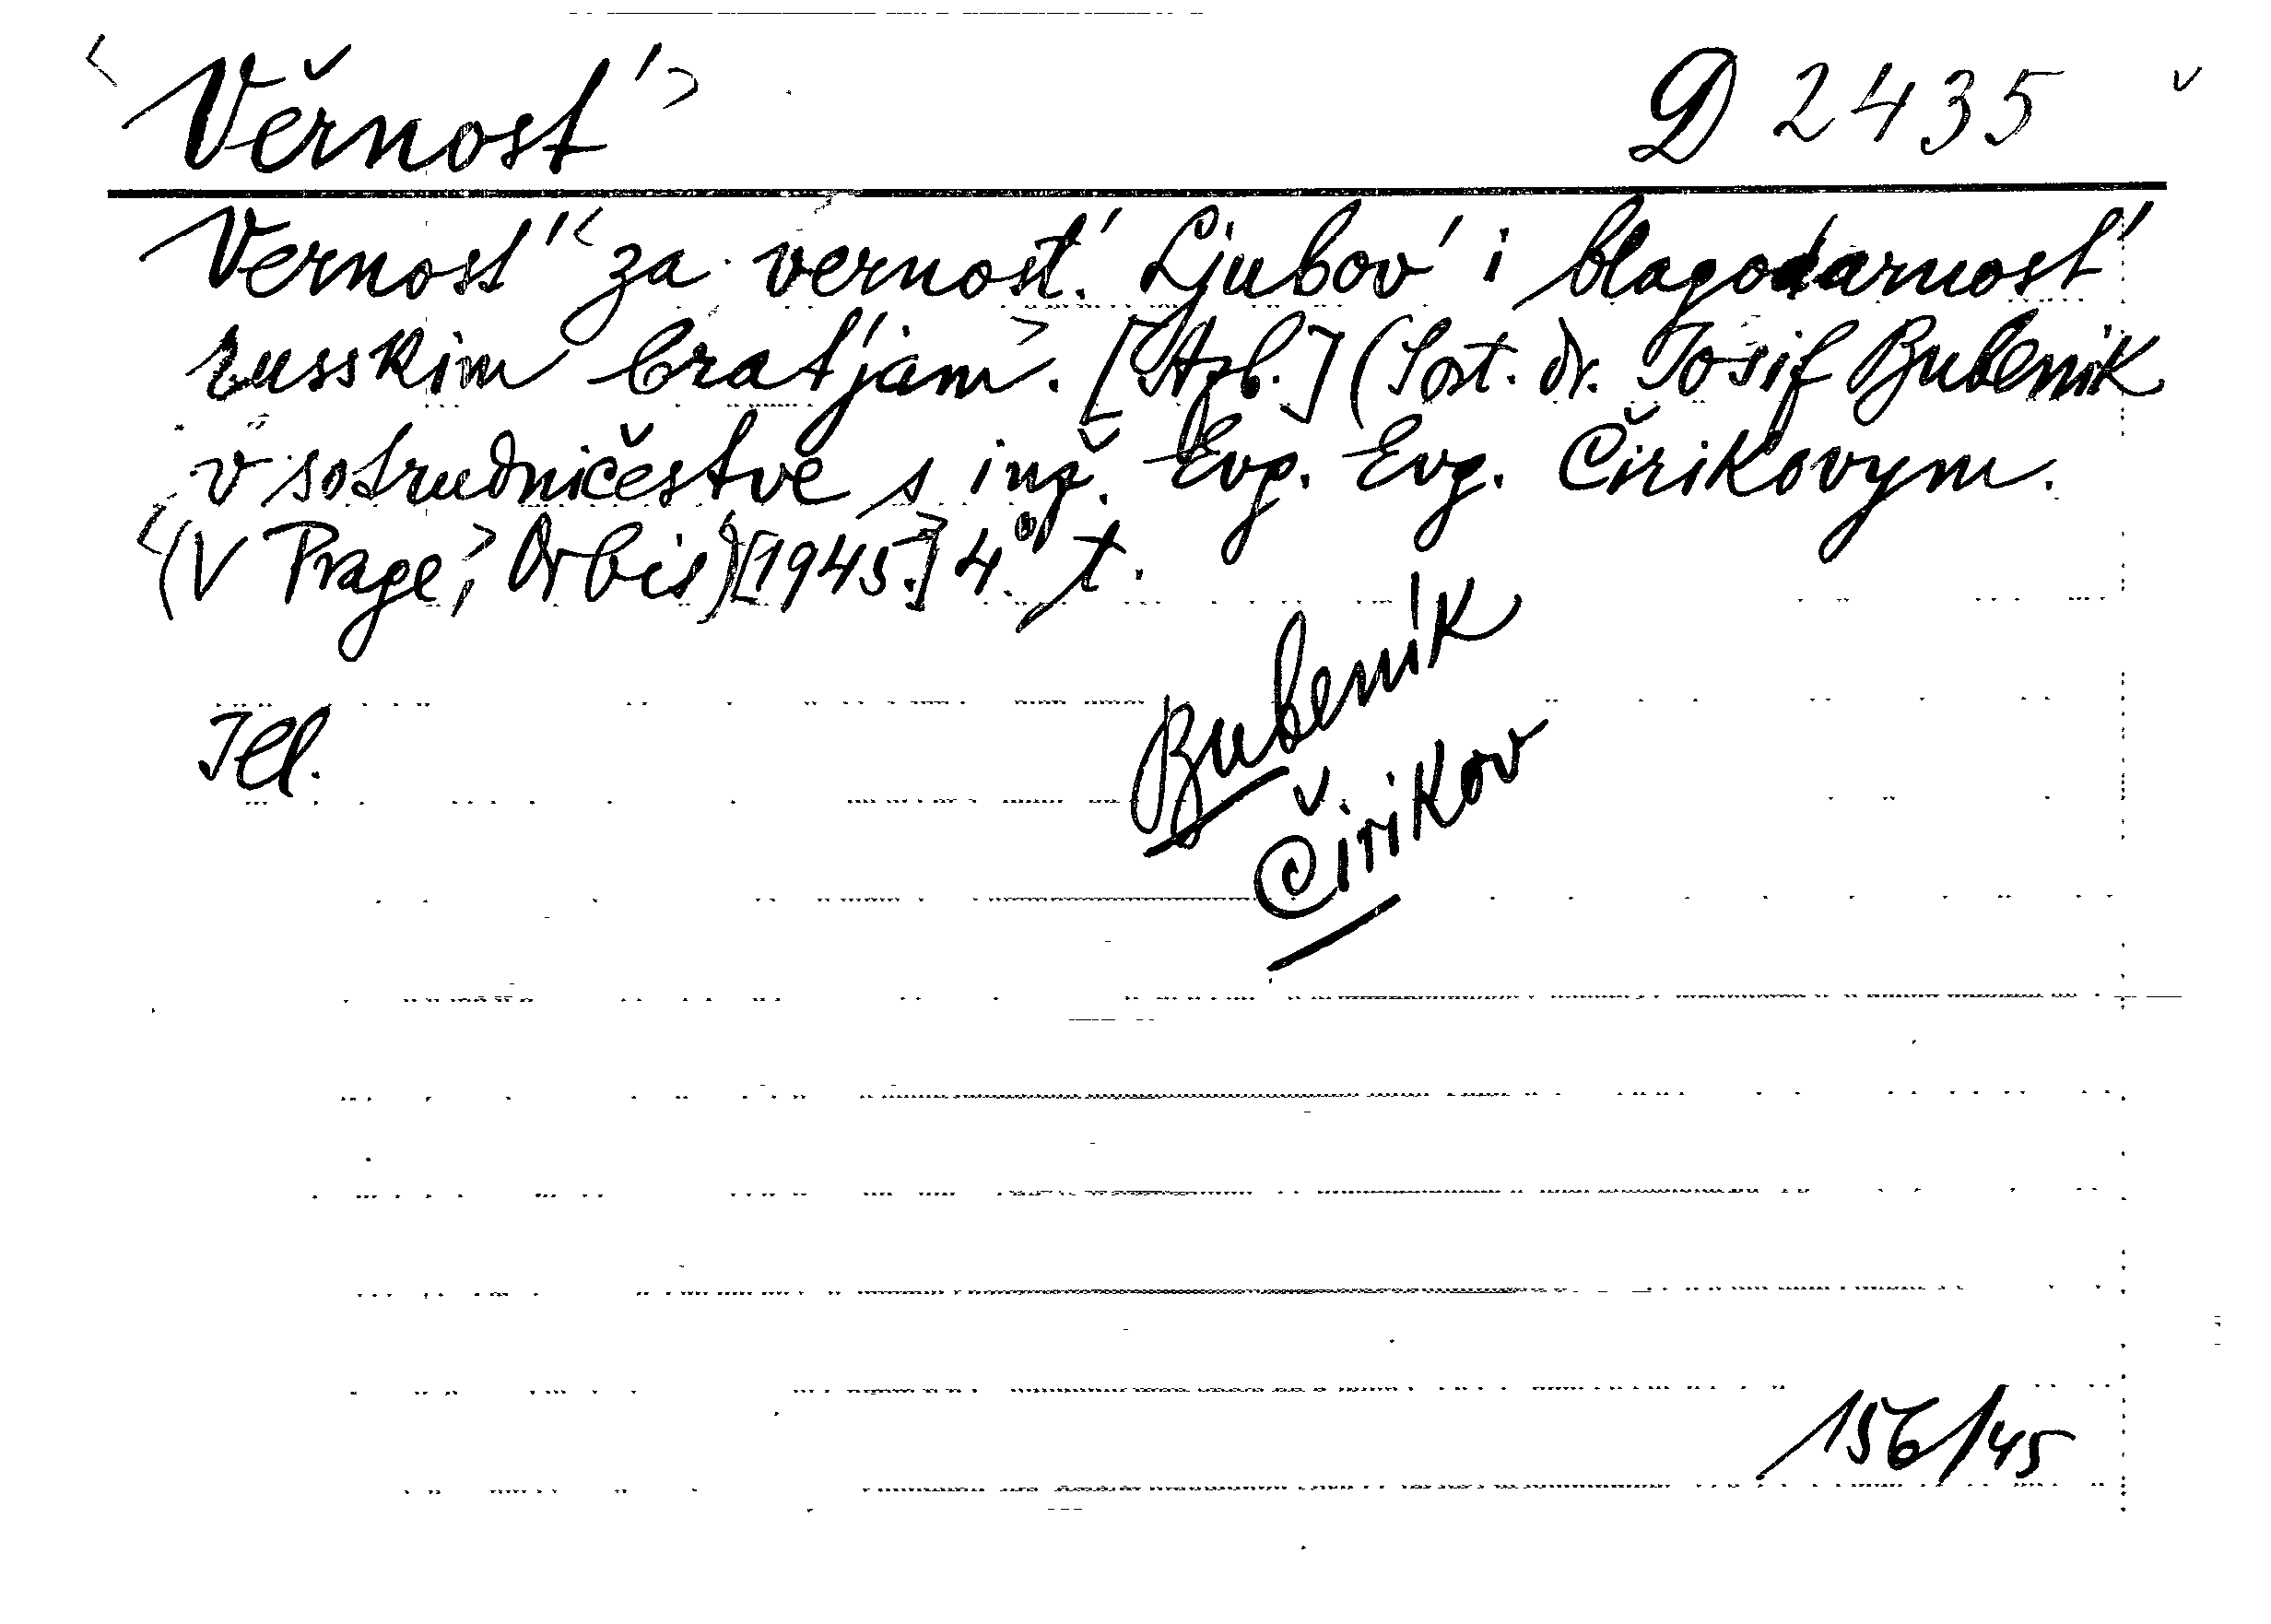 <Věrnost'> D 2435
Vernost' < za vernost'. Ljubov' i blagodarnost'
russkim brat'jam>. [Azb.] (Sost. dr. Iosif Bubenik
v sotrudničestve s inž. Evg. Evg. Čirikovym.
<(V Prage,> Orbis) [1945.] 4° t.
Ill.
Bubenik
Čirikov
156/45